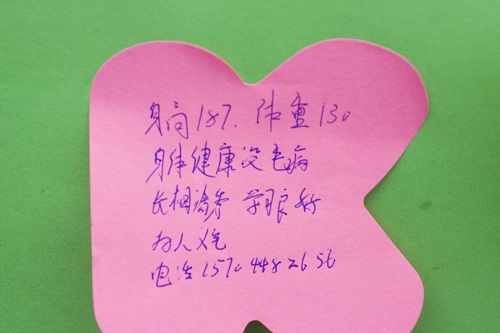 身高187、体重130
身体健康没毛病
长相清秀 学习良好
为人义气
电话15704482656